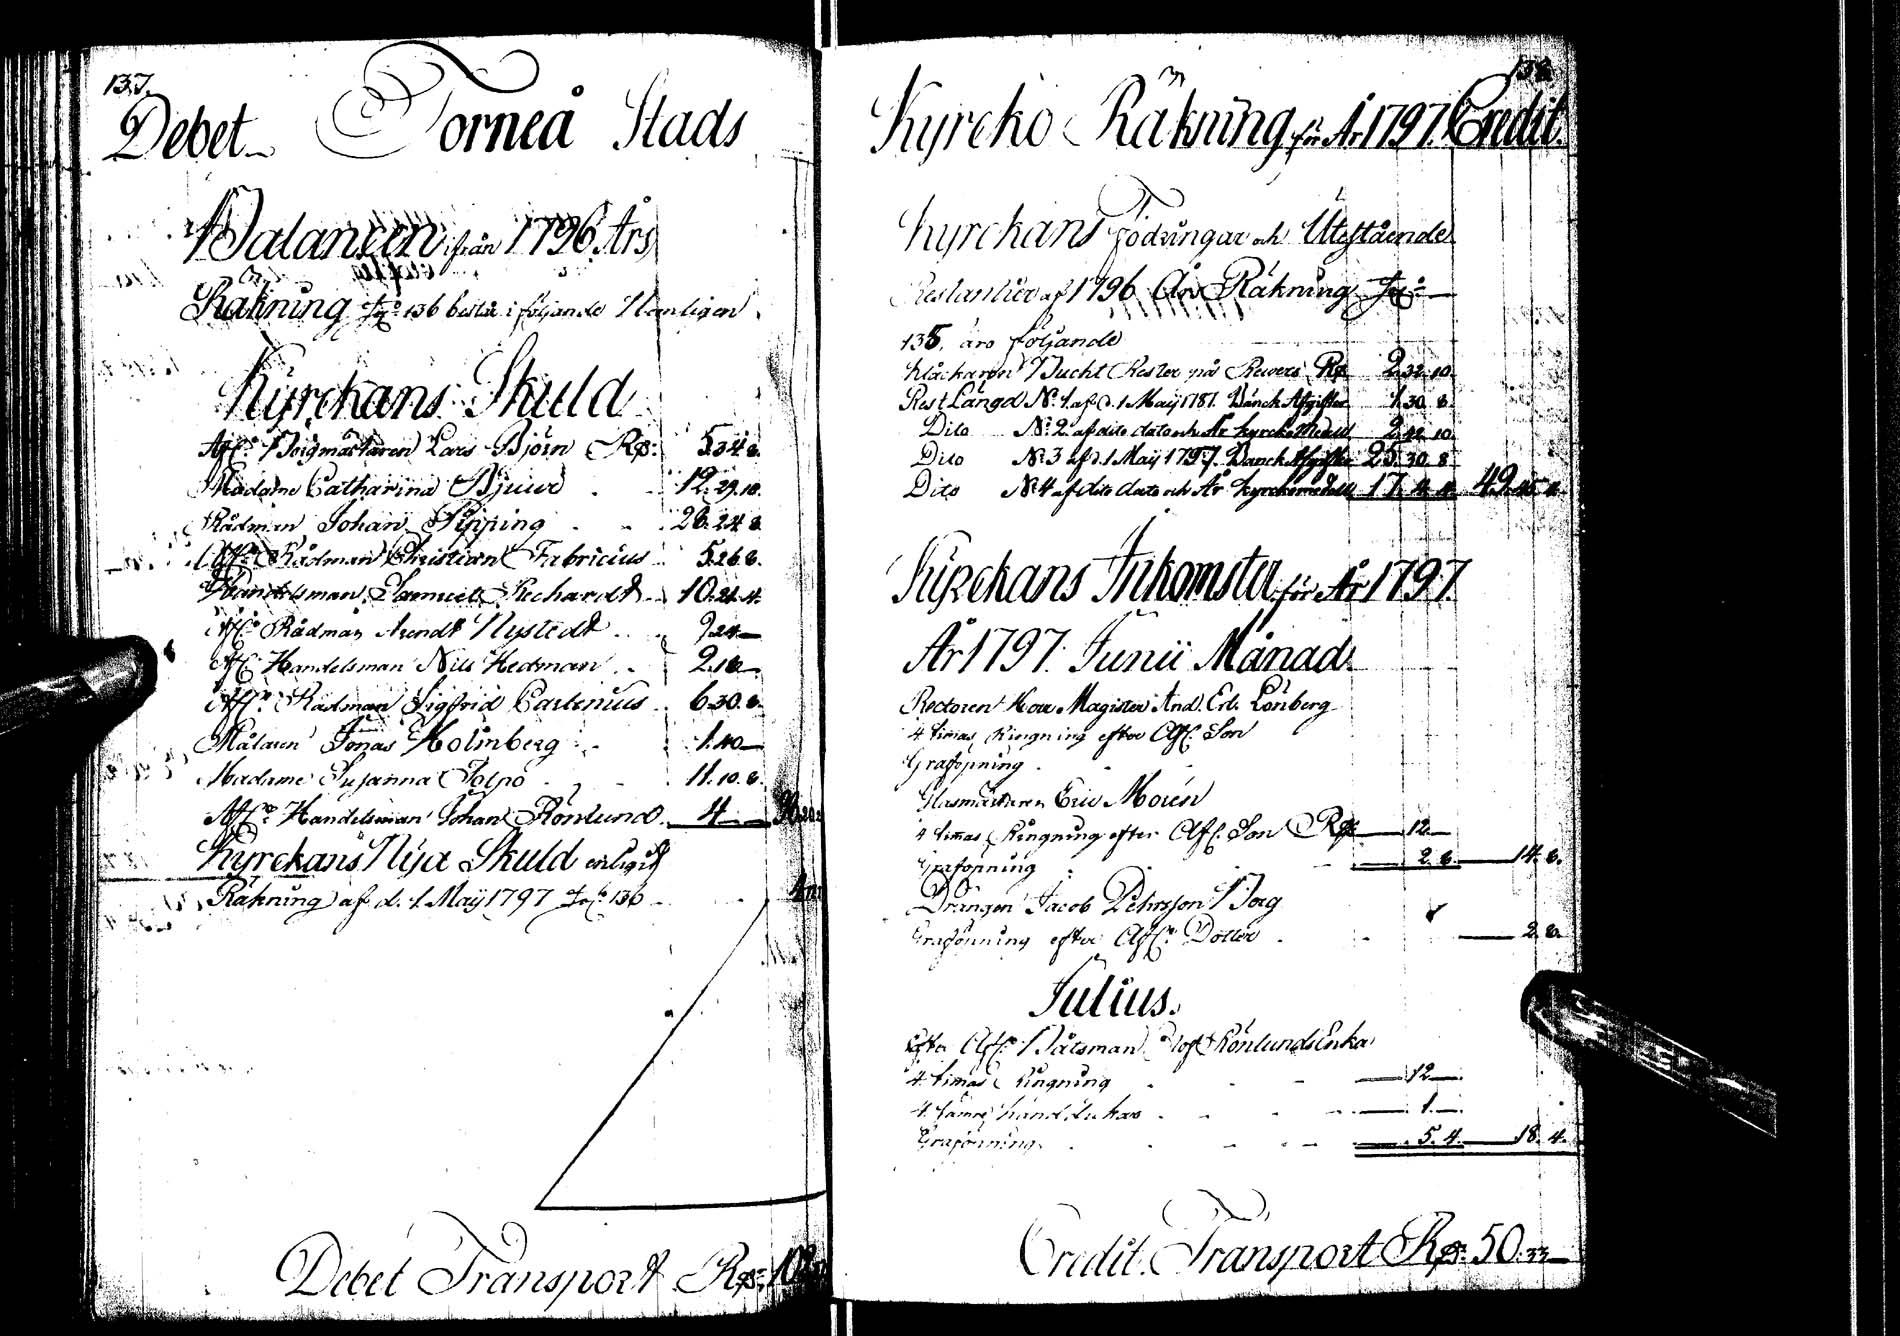 137.
Debet Torneå Stads
Balancen ifrån 1796 Års
Räkning Fol: 136 består i följande Nemligen
Kyrckans Skuld
Aff: Borgmästaren Lars Björn Rd: 5.34.8.
Madame Catharina 12.29.10.
Rådman Johan Pipping 26.24.8.
Aff: Rådman Christian Fabricius 5.26.8.
Handelsman Samuel Rechardt 10.21.4.
Aff: Rådman Arendt Nystedt 9.24
Aff: Handelsman Nils Hedman 2.16
Aff: Rådman Sigfrid Carlenius 6.30.8.
Målaren Jonas Holmberg 1.40
Madame Susanna Polpo 11.10.8.
Aff: Handelsman Johan Rönlund 4
Kyrckans Nya Skuld enligit
Räkning af d. 1. Maij 1797 Fol: 136
Debet Transport Rd:
138
Kyrcko Räkning för År 1797. Credit.
Kyrckans Födringar och Utestående
Restantier af 1796 Års Räkning Fol:
135. äro följande
Klåckaren Bucht Rester på Revers Rd 2.32.10.
Rest Längd No. 1. af d. 1 Maij 1787. Bänck Afgifter 1.30.8.
Dito No. 2 af dito dato och År Kyrckomedell 2.42.10
Dito No. 3 af d. 1 Maij 1797. Bänck Afgifter 25.30.8
Dito No. 4 af dito dato och År Kyrckomedell 17.4.4. 49.45.4.
Kyrckans Inkomster för År 1797.
År 1797. Junii Månad.
Rectoren Herr Magister And. Er. Lönberg
4 timas Ringning efter Aff: Son
Graföpning
Glasmästaren Eric Morén
4 timas Ringning efter Aff: Son Rd 12.
Graföpning 2.8. 14.8.
Drängen Jacob Pehrsson Borg
Graföpning efter Aff: Dotter 2.8.
Julius.
Efter Aff: Båtsman Olof Rönlunds Enka
4. timas Ringning 12
4. handklockas 1.
Graföpning 5.4. 18.4.
Credit Transport Rd: 50.33